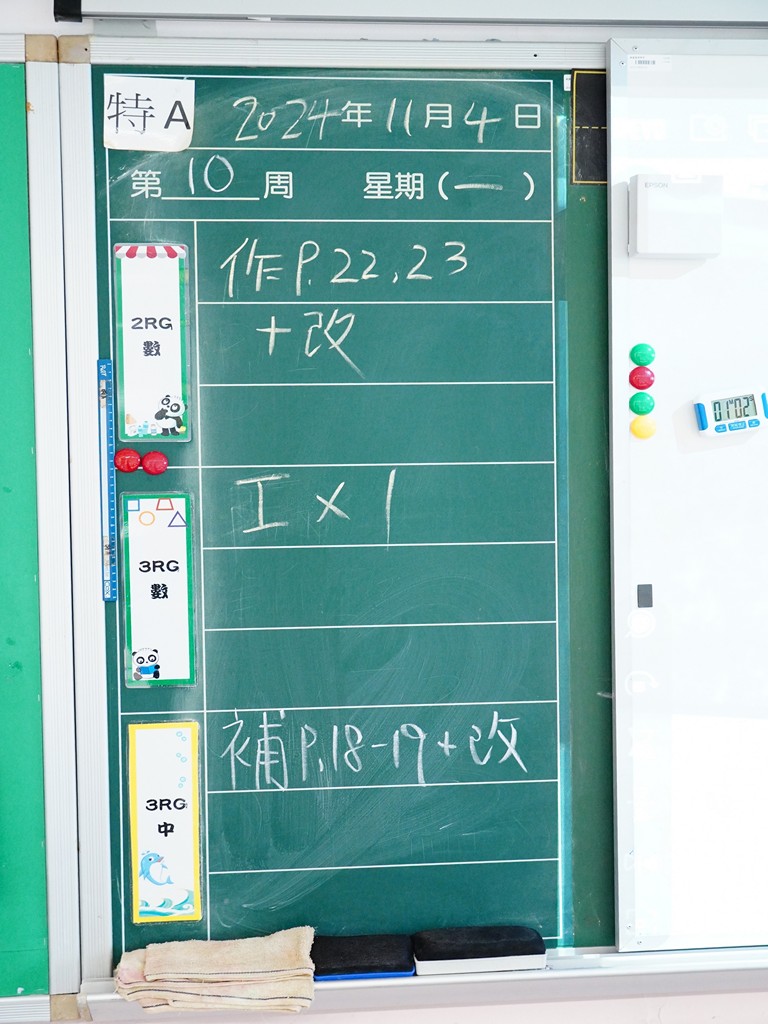 特A
2024年11月4日
第10周 星期(一)
2RG
數
作P.22,23
+改
3RG
數
工×1
3RG
中
補P.18-19+改
EPSON
01 02